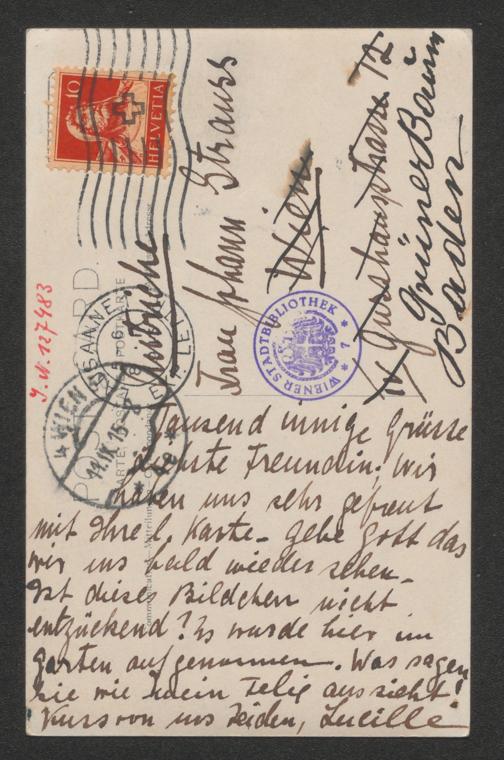 10
HELVETIA
Autriche
Frau Johann Strauss
Wien
IV Gusshausstrasse 12
Grüner Baum
Baden
J.N. 127483
WIENER STADTBIBLIOTHEK * 7 *
LAUSANNE
LETT.
POST CARD
WIEN
11.IX.15
Tausend innige Grüsse
liebste Freundin. Wir
haben uns sehr gefreut
mit Ihre l. Karte – gebe Gott das
wir uns bald wieder sehen –
Ist dieses Bildchen nicht
entzückend? Es wurde hier im
Garten aufgenommen. Was sagen
Sie wie mein Felix aussieht
Kuss von uns Beiden, Lucille